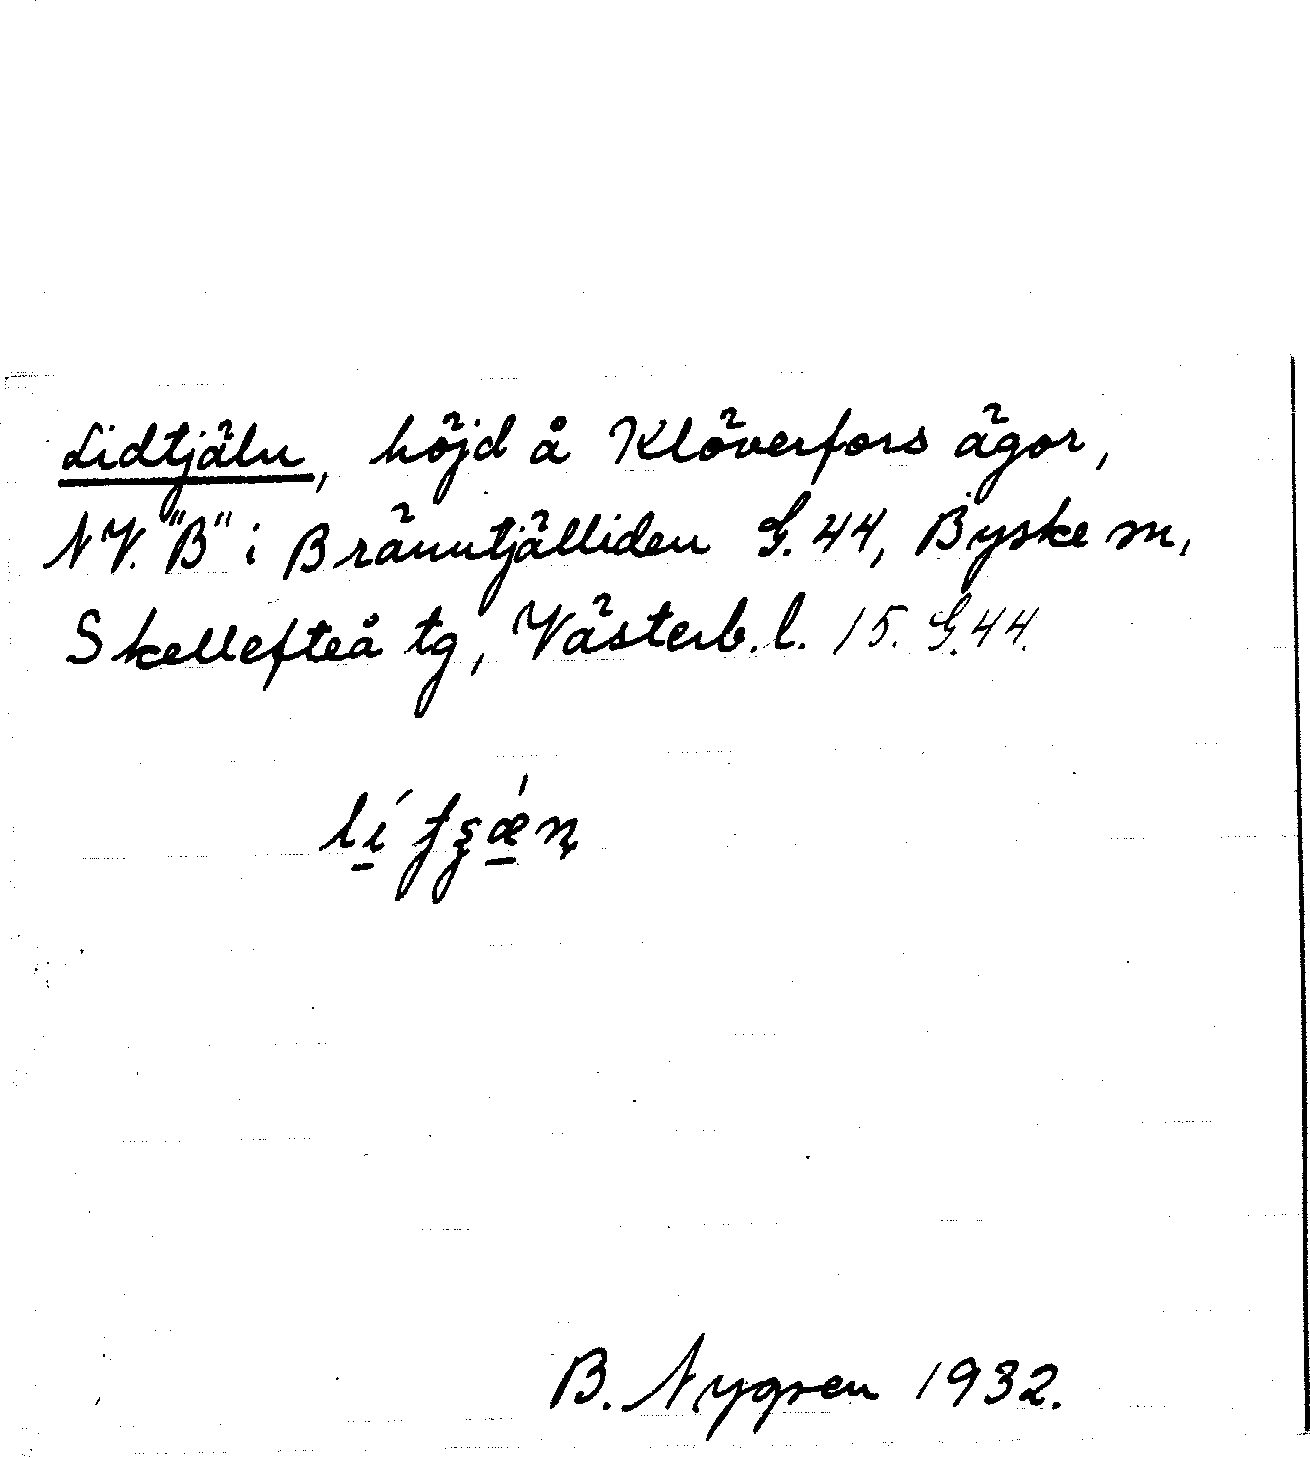 Lidtjäln, höjd å Klöverfors ägor,
NV. "B" i Bränntjälliden G. 44, Byske sn,
Skellefteå tg, Västerb. l. 15. G.44.
B. Nygren 1932.